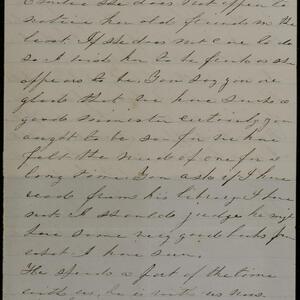 Emilie she does not appear to
notice her old friends in the
least. If she does not care to do
so I wish her to be fresh as she
appears to be. You say you are
glad that we have such a
good minister certainly you
ought to be so for we have
felt the need of one for a
long time. You ask if I have
read from his library I have
not I should judge he might
have some very good books from
what I have seen.
He spends a part of the time
with us, he is with us now.